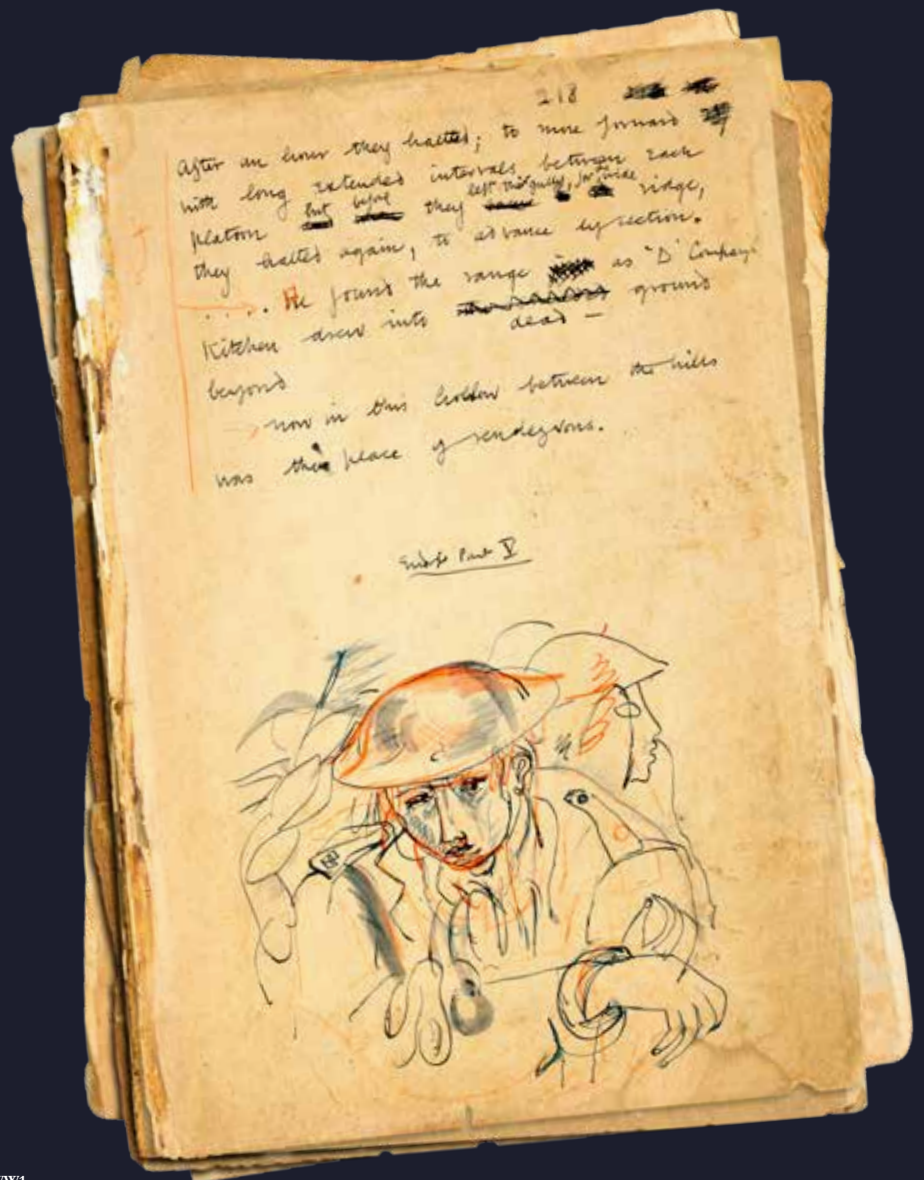 218
After an hour they halted; to move forward
with long extended intervals between each
platoon but before they left this gully, for the wide ridge,
they halted again, to advance by section.
.... He found the range as 'D' Company's
Kitchen drew into dead – ground
beyond
now in this hollow between the hills
was their place of rendezvous.
Part V